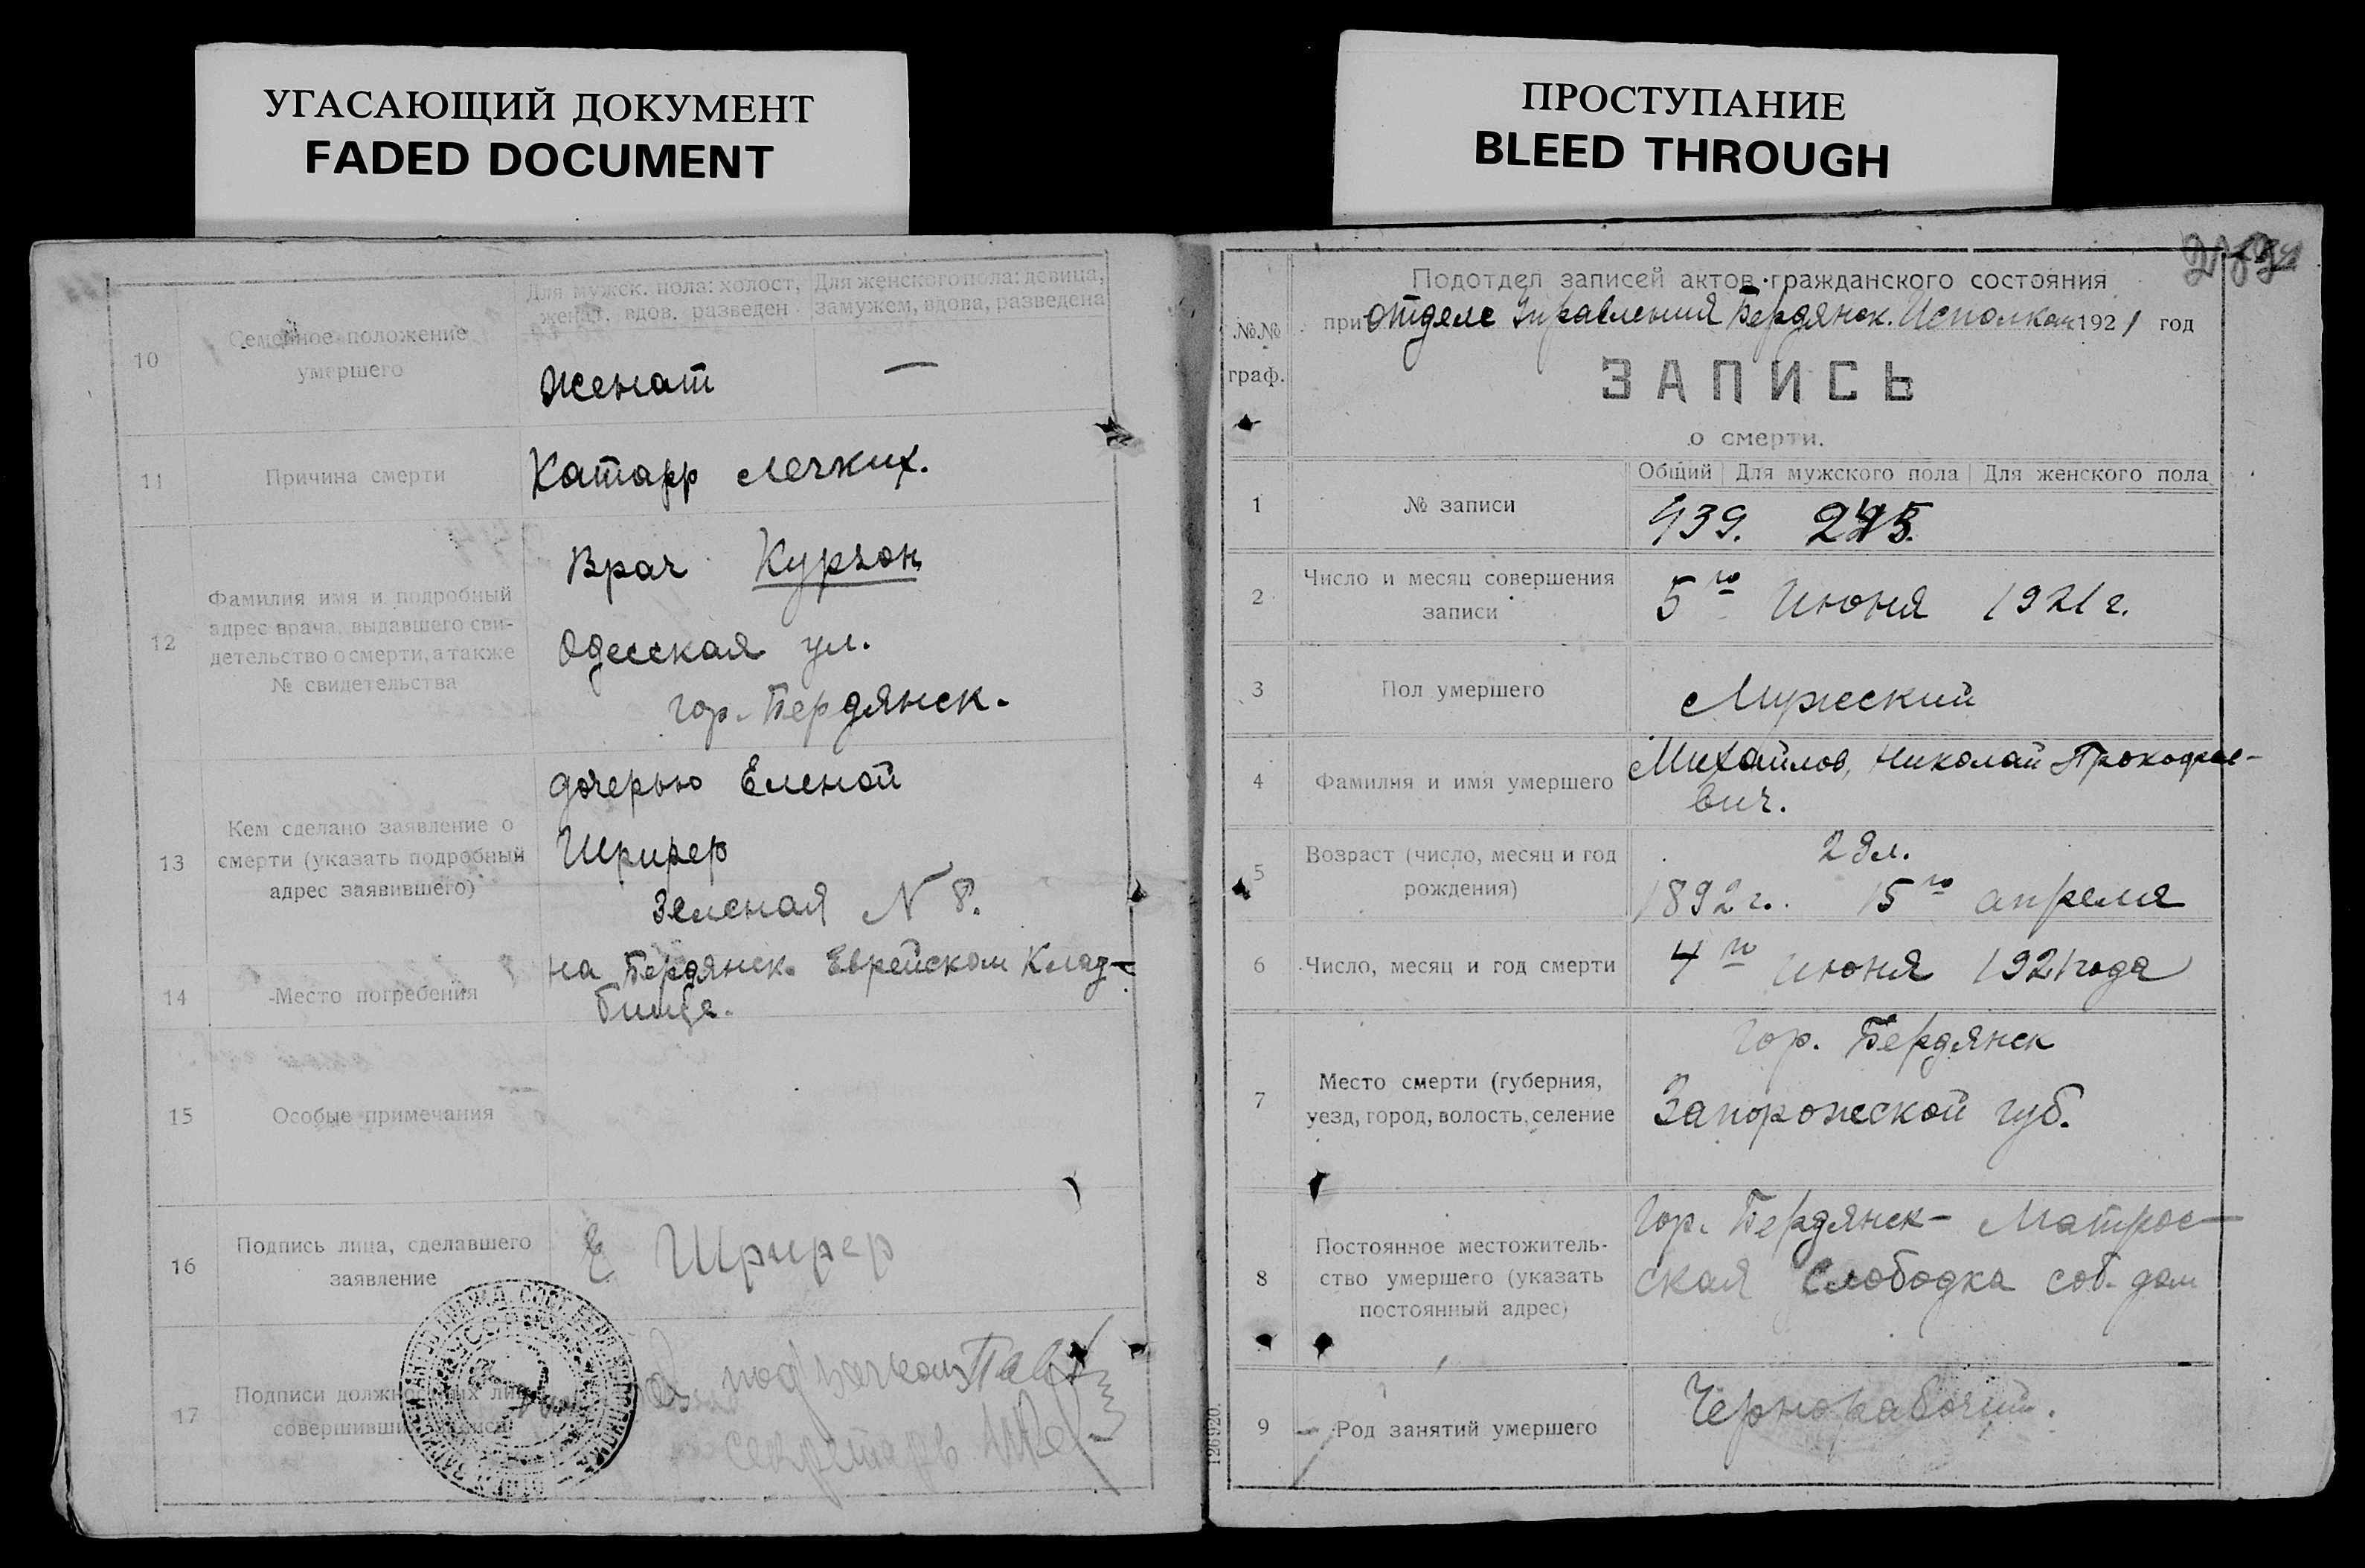 УГАСАЮЩИЙ ДОКУМЕНТ
FADED DOCUMENT
10
Семейное положение
умершего
Для мужск. пола: холост,
женат, вдов. разведен
Для женского пола: девица,
замужем, вдова, разведена
женат
—
11
Причина смерти
Катарр легких.
12
Фамилия имя и подробный
адрес врача, выдавшего сви-
детельство о смерти, а также
№ свидетельства
Врач Курзон
Одесская ул.
гор. Бердянск.
13
Кем сделано заявление о
смерти (указать подробный
адрес заявившего)
дочерью Еленой
Шрирер
Зеленая N 8.
14
Место погребения
на Бердянск. Еврейском Клад-
бище.
15
Особые примечания
16
Подпись лица, сделавшего
заявление
Е Шрирер
17
Подписи должностных лиц
совершивших
секретарь
ПРОСТУПАНИЕ
BLEED THROUGH
№№
граф.
Подотдел записей актов гражданского состояния
при отделе Управления Бердянск. Исполком 1921 год
ЗАПИСЬ
о смерти.
1
№ записи
Общий
Для мужского пола
Для женского пола
939.
2
Число и месяц совершения
записи
5го Июня 1921 г.
3
Пол умершего
Мужеский
4
Фамилия и имя умершего
Михайлов, Николай Прокофие-
вич.
5
Возраст (число, месяц и год
рождения)
29 л.
1892 г. 15го апреля
6
Число, месяц и год смерти
4го июня 1921 года
7
Место смерти (губерния,
уезд, город, волость, селение
гор. Бердянск
Запорожеской губ.
8
Постоянное местожитель-
ство умершего (указать
постоянный адрес)
Гор. Бердянск – Матрос-
ская Слободка соб. дом
9
Род занятий умершего
Чернорабочий.
126920.